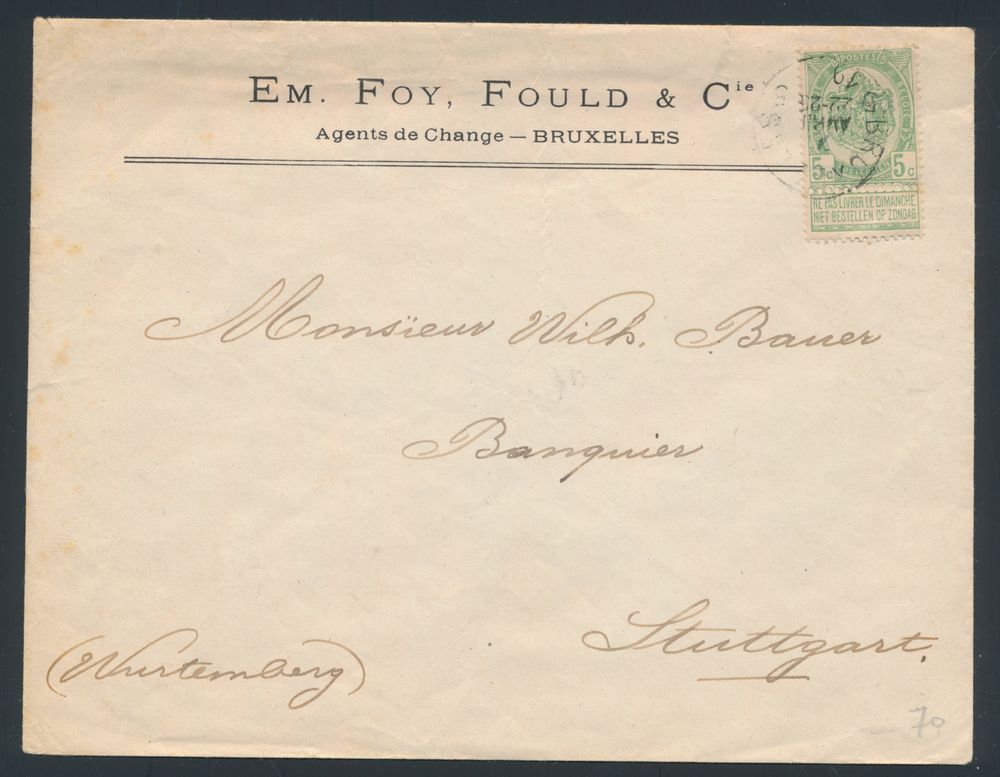 EM. FOY, FOULD & Cie
Agents de Change — BRUXELLES
POSTES
5c 5c
NE PAS LIVRER LE DIMANCHE
NIET BESTELLEN OP ZONDAG
Monsieur Wilh. Bauer
Banquier
Stuttgart.
(Wurtemberg)
70